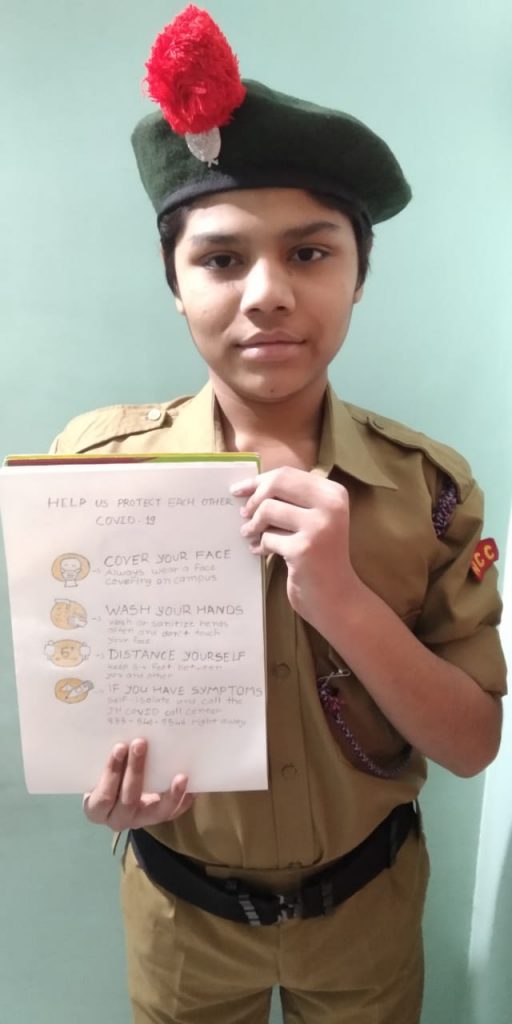 HELP US PROTECT EACH OTHER
COVID-19
COVER YOUR FACE
Always wear a face
covering on campus
WASH YOUR HANDS
wash or sanitize hands
often and don't touch
your face
6'
DISTANCE YOURSELF
keep 6+ feet between
you and other
IF YOU HAVE SYMPTOMS
self-isolate and call the
JH COVID call center
833-546-7546 right away
CC